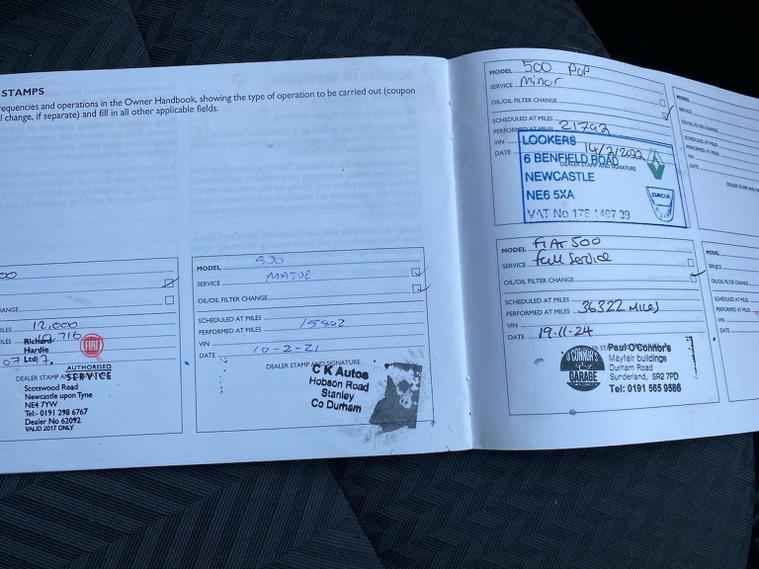 STAMPS
requencies and operations in the Owner Handbook, showing the type of operation to be carried out (coupon
l change, if separate) and fill in all other applicable fields.
00
HANGE
MILES 12,000
MILES 10,716
Richard
Hardie
Ltd
FIAT
07
DEALER STAMP AN
AUTHORISED
SERVICE
Scotswood Road
Newcastle upon Tyne
NE4 7YW
Tel:- 0191 298 6767
Dealer No 62092
VALID 2017 ONLY
MODEL 500
SERVICE MAJOE
OIL/OIL FILTER CHANGE
SCHEDULED AT MILES
PERFORMED AT MILES 15902
VIN
DATE 10-2-21
DEALER STAMP AND SIGNATURE
C K Autos
Hobson Road
Stanley
Co Durham
MODEL 500 POP
SERVICE Minor
OIL/OIL FILTER CHANGE
SCHEDULED AT MILES
PERFORMED AT MILES 21792
VIN
DATE 14/2/2022
DEALER STAMP AND SIGNATURE
LOOKERS
6 BENFIELD ROAD
NEWCASTLE
NE6 5XA
VAT No 178 1487 39
DACIA
MODEL FIAT 500
SERVICE full Service
OIL/OIL FILTER CHANGE
SCHEDULED AT MILES
PERFORMED AT MILES 36322 MILES
VIN
DATE 19.11.24
O'CONNOR'S
GARAGE
Paul O'Connor's
Mayfair buildings
Durham Road
Sunderland, SR2 7PD
Tel: 0191 565 9586
MODEL
SERVICE
OIL/OIL FILTER CHANGE
SCHEDULED AT MILES
PERFORMED AT MILES
VIN
DATE
DEALER STAMP AND
MODEL
SERVICE
OIL/OIL
SCHEDULED
PERFORMED
VIN
DATE